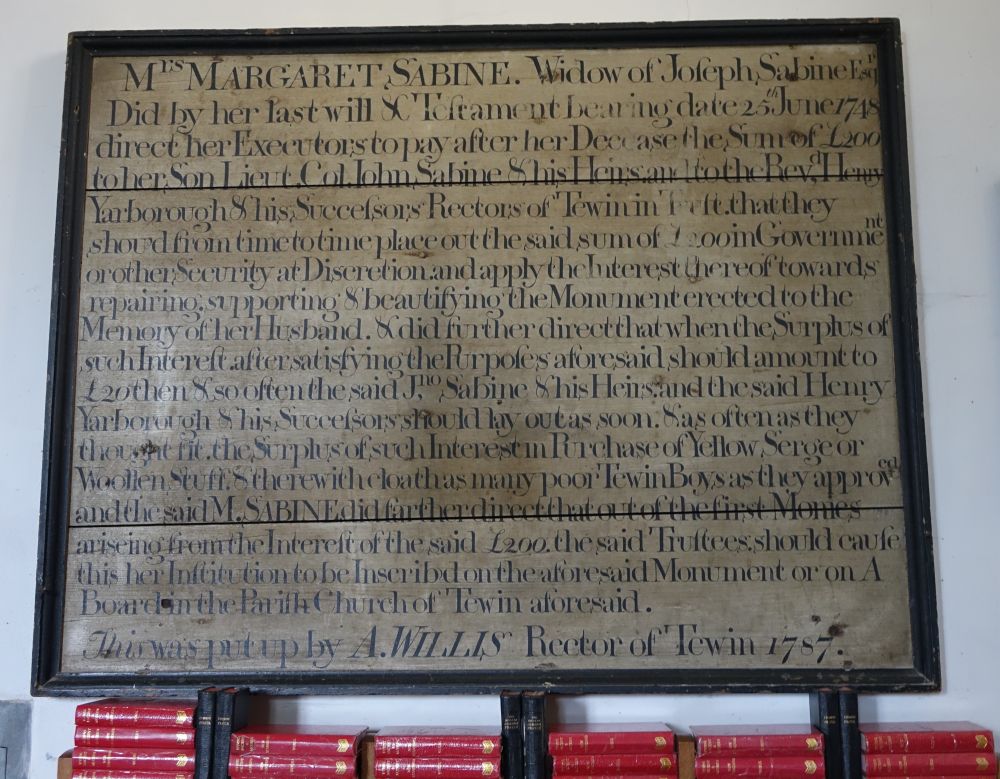 Mrs MARGARET SABINE. Widow of Joſeph Sabine Esqr
Did by her laſt will & Teſtament bearing date 25th June 1748
direct her Executors to pay after her Decease the Sum of £200
to her Son Lieut. Col. John Sabine & his Heirs and to the Revd. Henry
Yarborough & his Succeſsors Rectors of Tewin in Truſt. that they
shou'd from time to time place out the said sum of £200 in Government
or other Security at Discretion. and apply the Interest thereof towards
repairing, supporting & beautifying the Monument erected to the
Memory of her Husband. & did further direct that when the Surplus of
such Intereſt. after satisfying the Purpoſes aforesaid should amount to
£20 then & so often the said Jno. Sabine & his Heirs and the said Henry
Yarborough & his Succeſsors should lay out as soon. & as often as they
thought fit. the Surplus of such Interest in Purchase of Yellow Serge or
Woollen Stuff. & therewith cloath as many poor Tewin Boys as they approv'ed
and the said M. SABINE did farther direct that out of the first Monies
ariseing from the Intereſt of the said £200. the said Truſtees should cauſe
this her Inſtitution to be Inscrib'd on the aforesaid Monument or on A
Board in the Pariſh Church of Tewin aforesaid.
This was put up by A. WILLIS Rector of Tewin 1787.